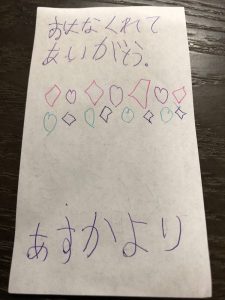 おはなくれて
ありがとう。
あすかより